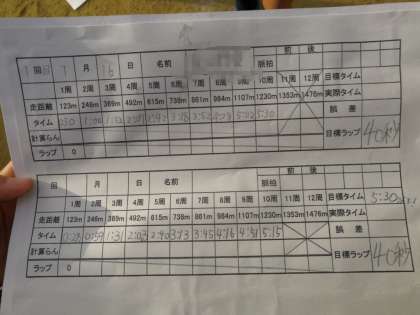 1 回目 7 月 16 日 名前 脈拍 前 後
1周 2周 3周 4周 5周 6周 7周 8周 9周 10周 11周 12周 目標タイム
走距離 123m 246m 369m 492m 615m 738m 861m 984m 1107m 1230m 1353m 1476m 実際タイム
タイム 5:30 誤差
計算らん 目標ラップ 40秒
ラップ 0
回 月 日 名前 脈拍 前 後
1周 2周 3周 4周 5周 6周 7周 8周 9周 10周 11周 12周 目標タイム 5:30
走距離 123m 246m 369m 492m 615m 738m 861m 984m 1107m 1230m 1353m 1476m 実際タイム
タイム 0:28 0:59 1:31 2:03 2:40 3:13 3:45 4:16 4:51 5:15 誤差
計算らん 目標ラップ 40秒
ラップ 0